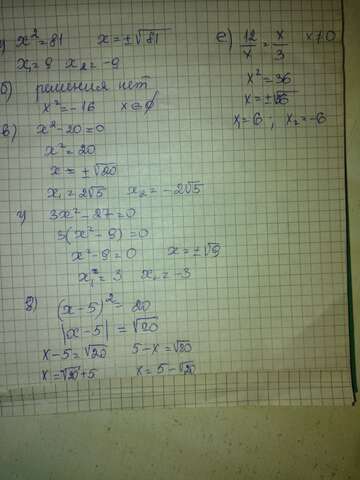 ) x² = 81 x = ±√81
x₁ = 9 x₂ = -9
б) решения нет
x² = -16 x ∈ ∅
в) x² - 20 = 0
x² = 20
x = ±√20
x₁ = 2√5 x₂ = -2√5
г) 3x² - 27 = 0
3(x² - 9) = 0
x² - 9 = 0 x = ±√9
x₁ = 3 x₂ = -3
д) (x - 5)² = 20
|x - 5| = √20
x - 5 = √20 5 - x = √20
x = √20 + 5 x = 5 - √20
е) 12/x = x/3 x ≠ 0
x² = 36
x = ±√36
x₁ = 6 ; x₂ = -6